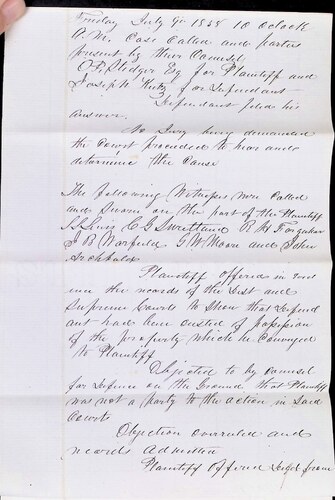 Friday July 9th 1858 10 oclock
A.M. Case Called and parties
present by their Counsel
O.P. Stidger Esq for Plaintiff and
Joseph Kutz for Defendant
Defendant filed his
answer.
No Jury being demanded
the Court proceeded to hear and
determine the Cause
The following Witnesses were Called
and Sworn on the part of the Plaintiff
S. Lewis C G Swettland R H Farquhar
J B Warfield G W Moore and John
Archbald
Plaintiff offered in Evid
ence the records of the Dist and
Supreme Courts to Show that Defend
ant had been ousted of possession
of the property which he Conveyed
to Plaintiff
Objected to by Counsel
for Defence on the Ground that Plaintiff
was not a party to the action in Said
Courts
Objection overruled and
records Admitted
Plaintiff Offered Deed from